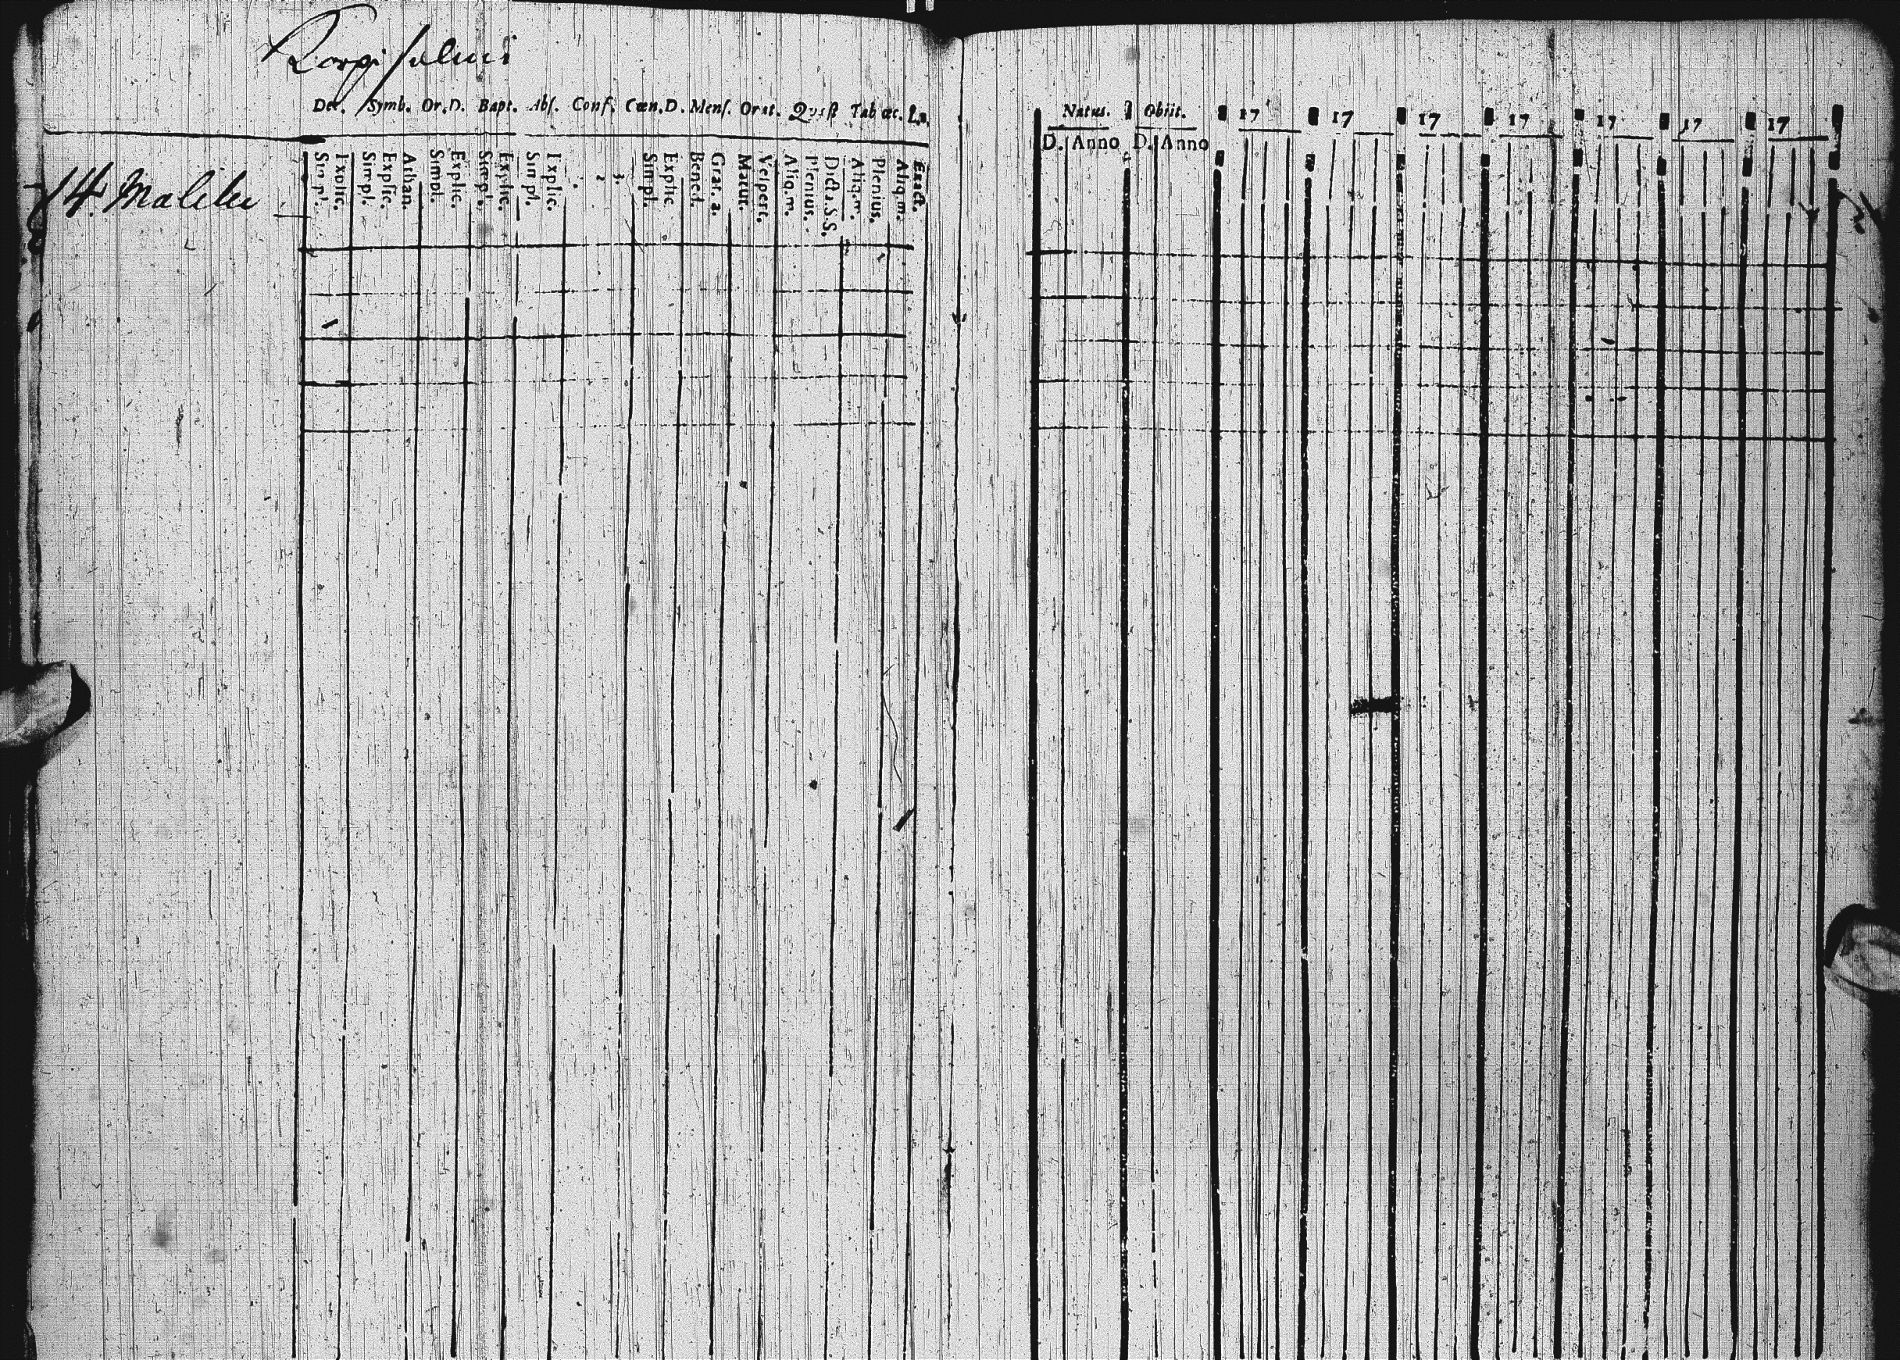 Dec. Symb. Or. D. Bapt. Abs. Conf. Cœn. D. Mens. Orat. Quæst Tab œc.
Simpl. Explic. Simpl. Explic. Athan. Simpl. Explic. Simpl. Explic. Simpl. Explic. 2 3. Simpl. Explic Bened. Grat. a. Matut. Vespert. Aliq.m. Plenius. Dicta.S.S. Aliq.m. Plenius. Aliq.m. Exact.
14. Malileu
Natus. Obiit. 17 17 17 17 17 17 17
D. Anno D. Anno